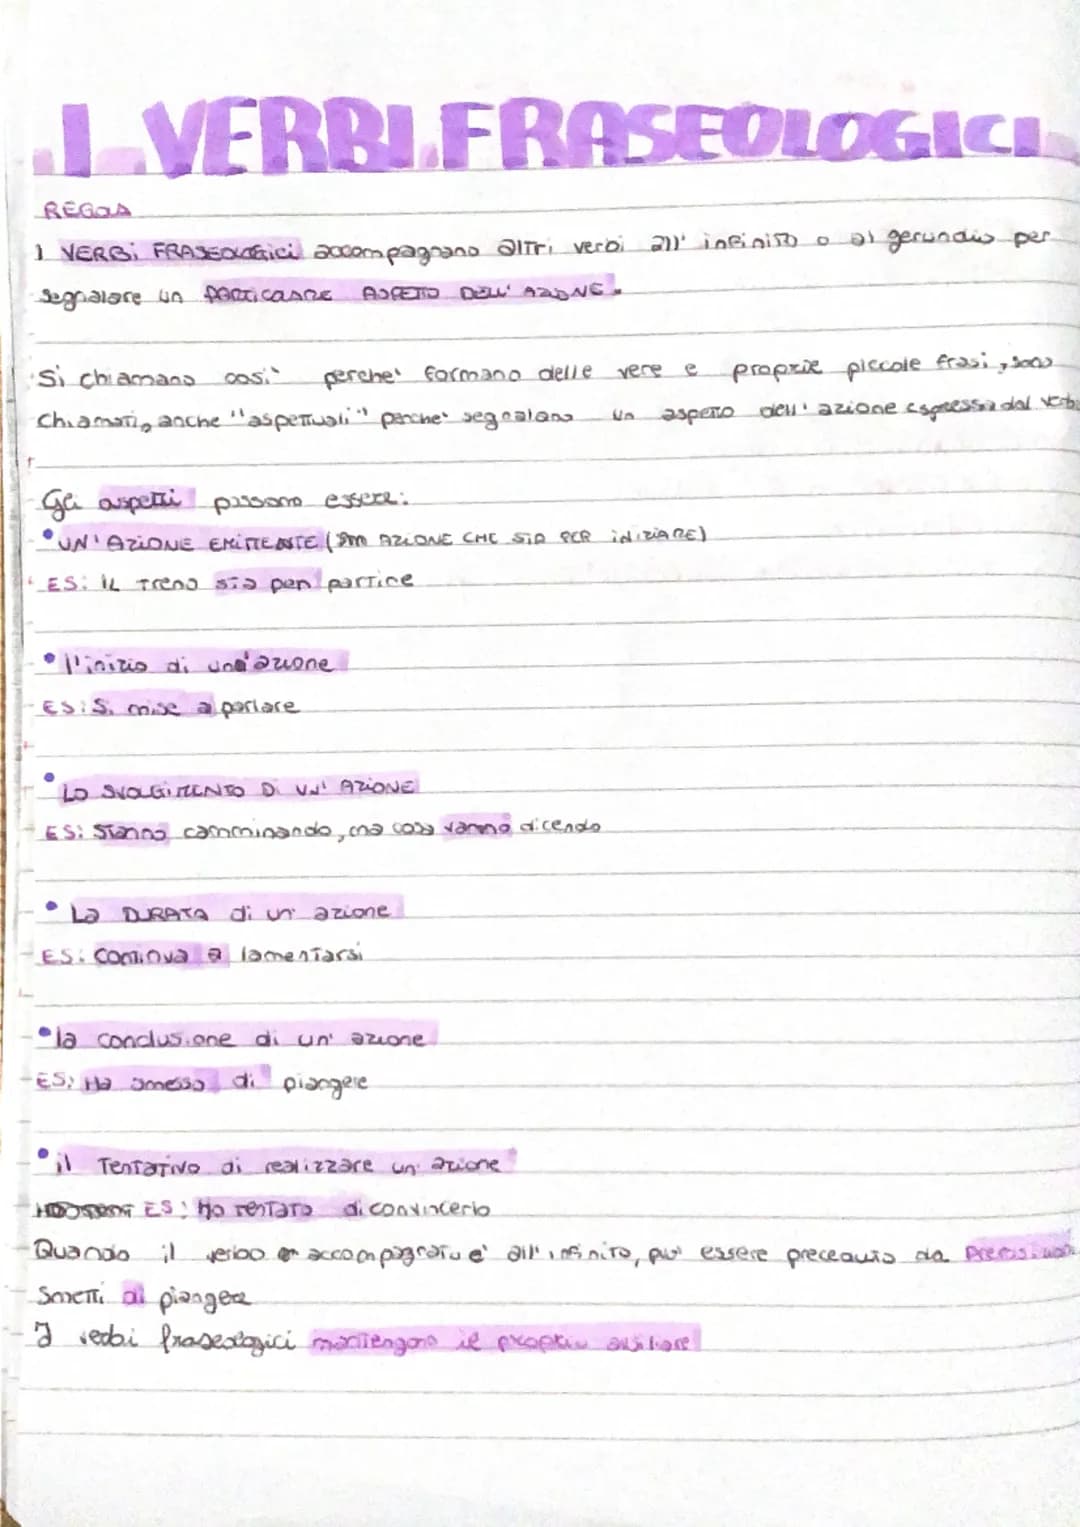 I VERBI FRASEOLOGICI
REGOLA
I VERBi FRASEOLOGici accompagnano altri verbi all' infinito o al gerundio per
segnalare un PARTICOLARE ASPETTO DELL' AZIONE.
Si chiamano cosi' perche' formano delle vere e proprie piccole frasi, sono
chiamati, anche "aspettuali" perche' segnalano un aspetto dell' azione espressa dal verbo
Gli aspetti possono essere:
• UN' AZIONE (AZIONE CHE STA PER iNiZiARE)
ES: IL Treno sta per partire
• l'inizio di una'azione
ES: Si mise a parlare
• LO SVOLGIMENTO Di UN' AZIONE
ES: Stanno camminando, ma cosa vanno dicendo
• La DURATA di un' azione
ES: Continua a lamentarsi
• la conclusione di un' azione
ES: Ha smesso di piangere
• il Tentativo di realizzare un' azione
ES: Ho tentato di convincerlo
Quando il verbo accompagnato e' all' infinito, puo' essere preceduto da
Smetti di piangere
I verbi fraseologici mantengono il proprio ausiliare